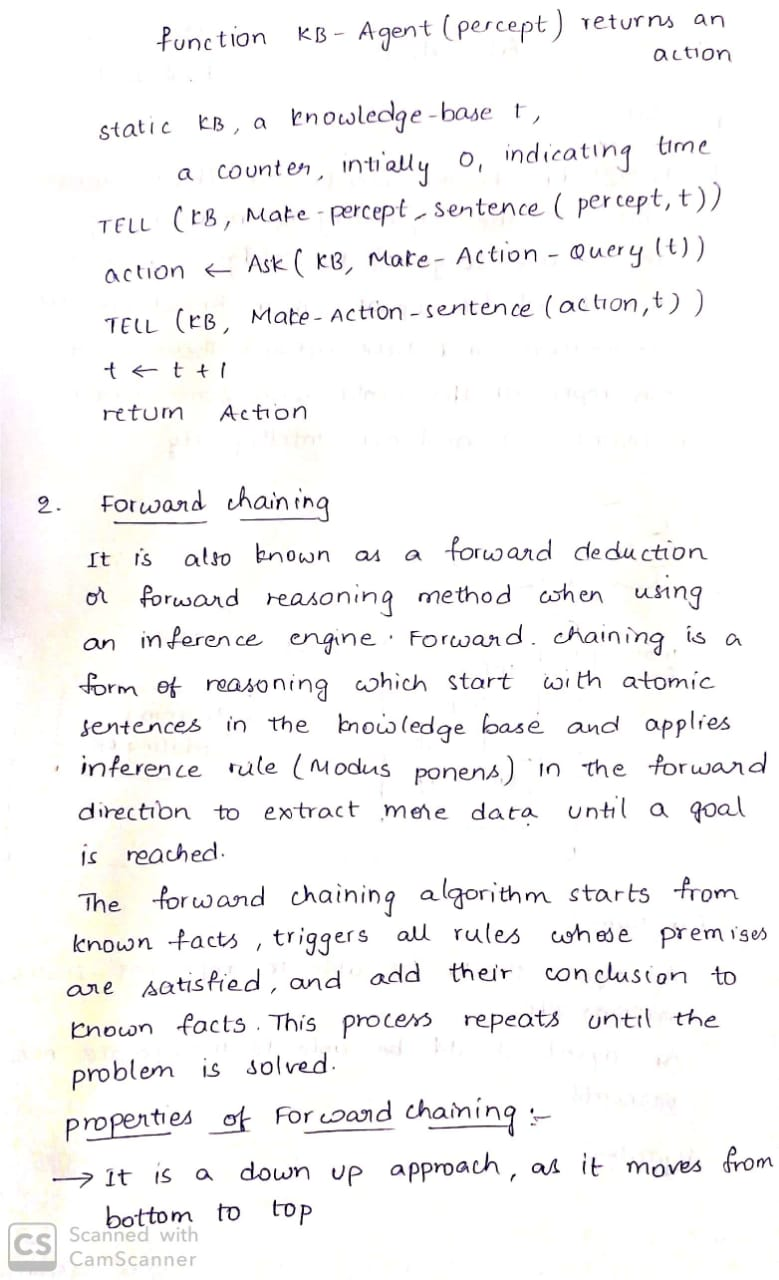 function KB- Agent (percept) returns an
action
static KB, a knowledge-base t,
a counter, intially 0, indicating time
TELL (KB, Make-percept-sentence (percept,t))
action ← Ask (KB, Make-Action-Query (t))
TELL (KB, Make-Action-sentence (action,t))
t ← t + 1
return Action
2. Forward chaining
It is also known as a forward deduction
or forward reasoning method when using
an inference engine. Forward. chaining is a
form of reasoning which start with atomic
sentences in the knowledge base and applies
inference rule (Modus ponens) in the forward
direction to extract more data until a goal
is reached.
The forward chaining algorithm starts from
known facts, triggers all rules whose premises
are satisfied, and add their conclusion to
known facts. This process repeats until the
problem is solved.
properties of Forward chaining :-
→ It is a down up approach, as it moves from
bottom to top
CS Scanned with
CamScanner